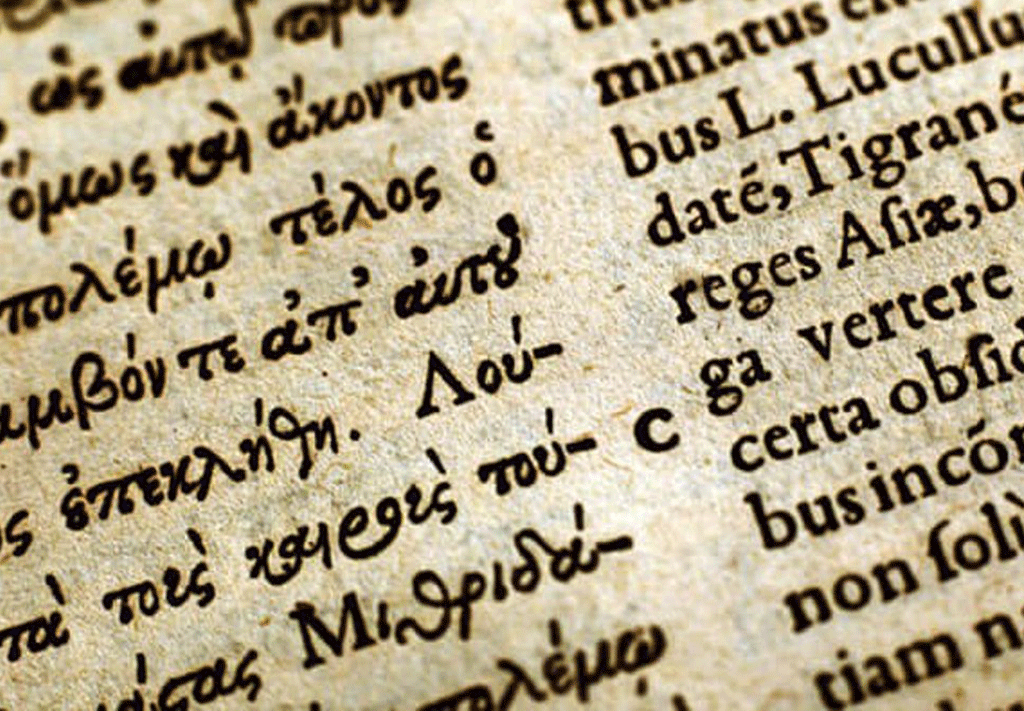 ὅμως καὶ ἄκοντος
πολέμῳ τέλος ὁ
τε ἀπ' αὐτοῦ
ἐπεκλήθη. Λού-
τοὺς καιροὺς τού-
Μιθριδά-
πολέμῳ
minatus
bus L. Lucullu
daté, Tigrané
reges Aſiæ, be
ga vertere
C certa obſid
bus incóm
non ſolù
tiam n